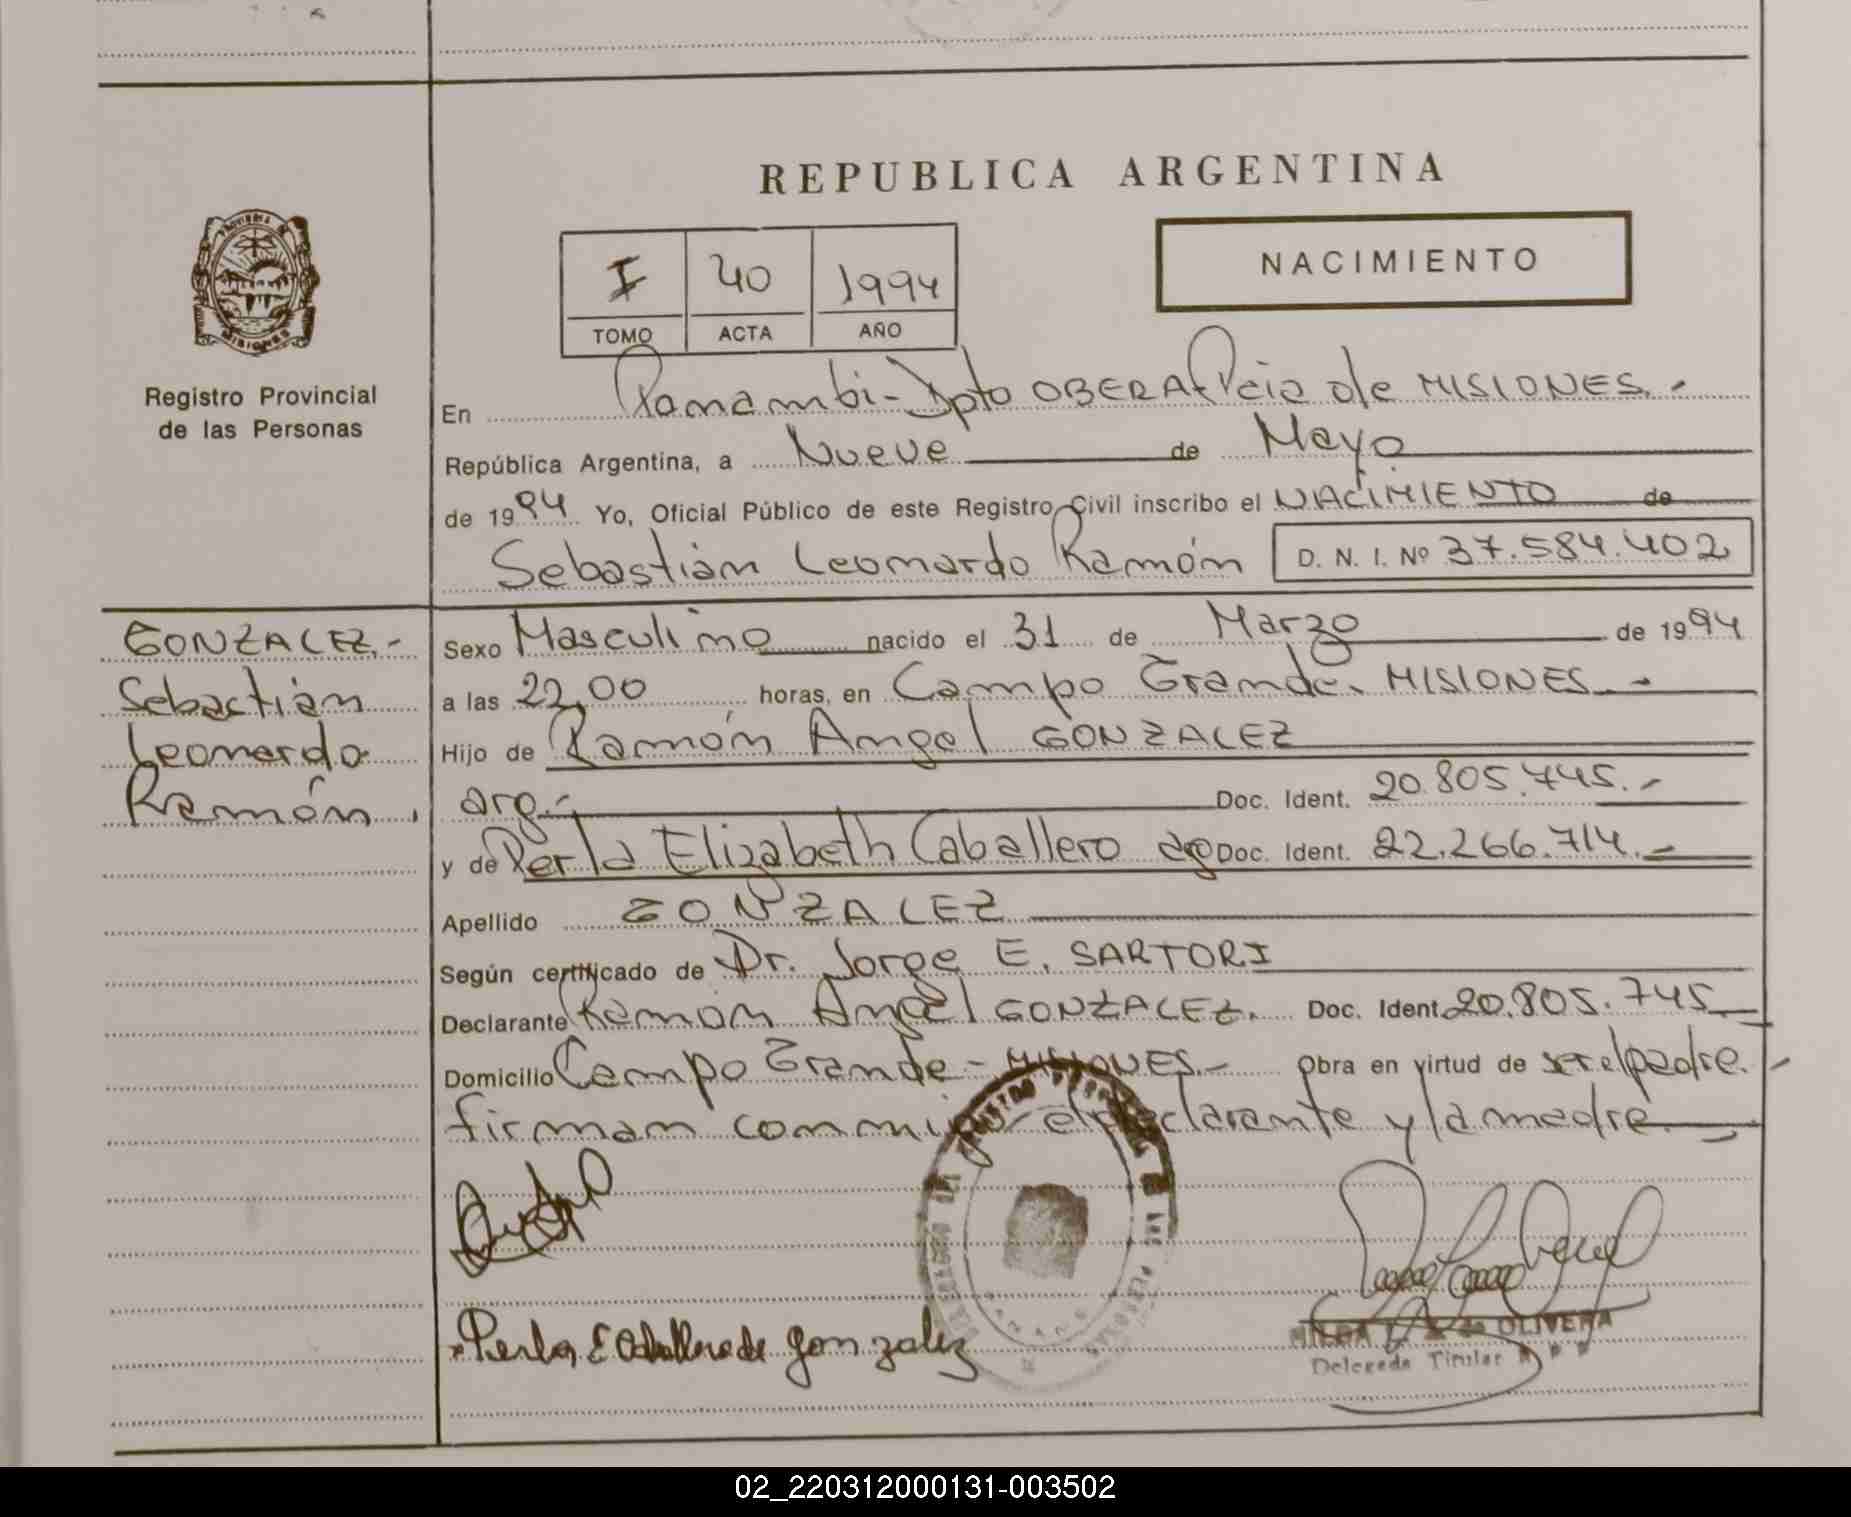 REPUBLICA ARGENTINA
PROVINCIA DE
MISIONES
Registro Provincial
de las Personas
I 40 1994
TOMO ACTA AÑO
NACIMIENTO
En Panambi - Dpto OBERA - Pcia de MISIONES.-
República Argentina, a Nueve de Mayo
de 1994 Yo, Oficial Público de este Registro Civil inscribo el NACIMIENTO de
Sebastián Leonardo Ramón D. N. I. Nº 37.584.402
GONZALEZ.-
Sebastián
Leonardo
Ramón.
Sexo Masculino nacido el 31 de Marzo de 1994
a las 22,00 horas, en Campo Grande. MISIONES.-
Hijo de Ramón Angel GONZALEZ
arg.- Doc. Ident. 20.805.745.-
y de Perla Elizabeth Caballero Doc. Ident. 22.266.714.-
Apellido GONZALEZ
Según certificado de Dr. Jorge E. SARTORI
Declarante Ramón Angel GONZALEZ. Doc. Ident. 20.805.745
Domicilio Campo Grande - MISIONES.- Obra en virtud de ser el padre.-
firman conmigo el declarante y la madre.
Perla E Caballero de Gonzalez
OLIVERA
Delegada Titular
02_220312000131-003502